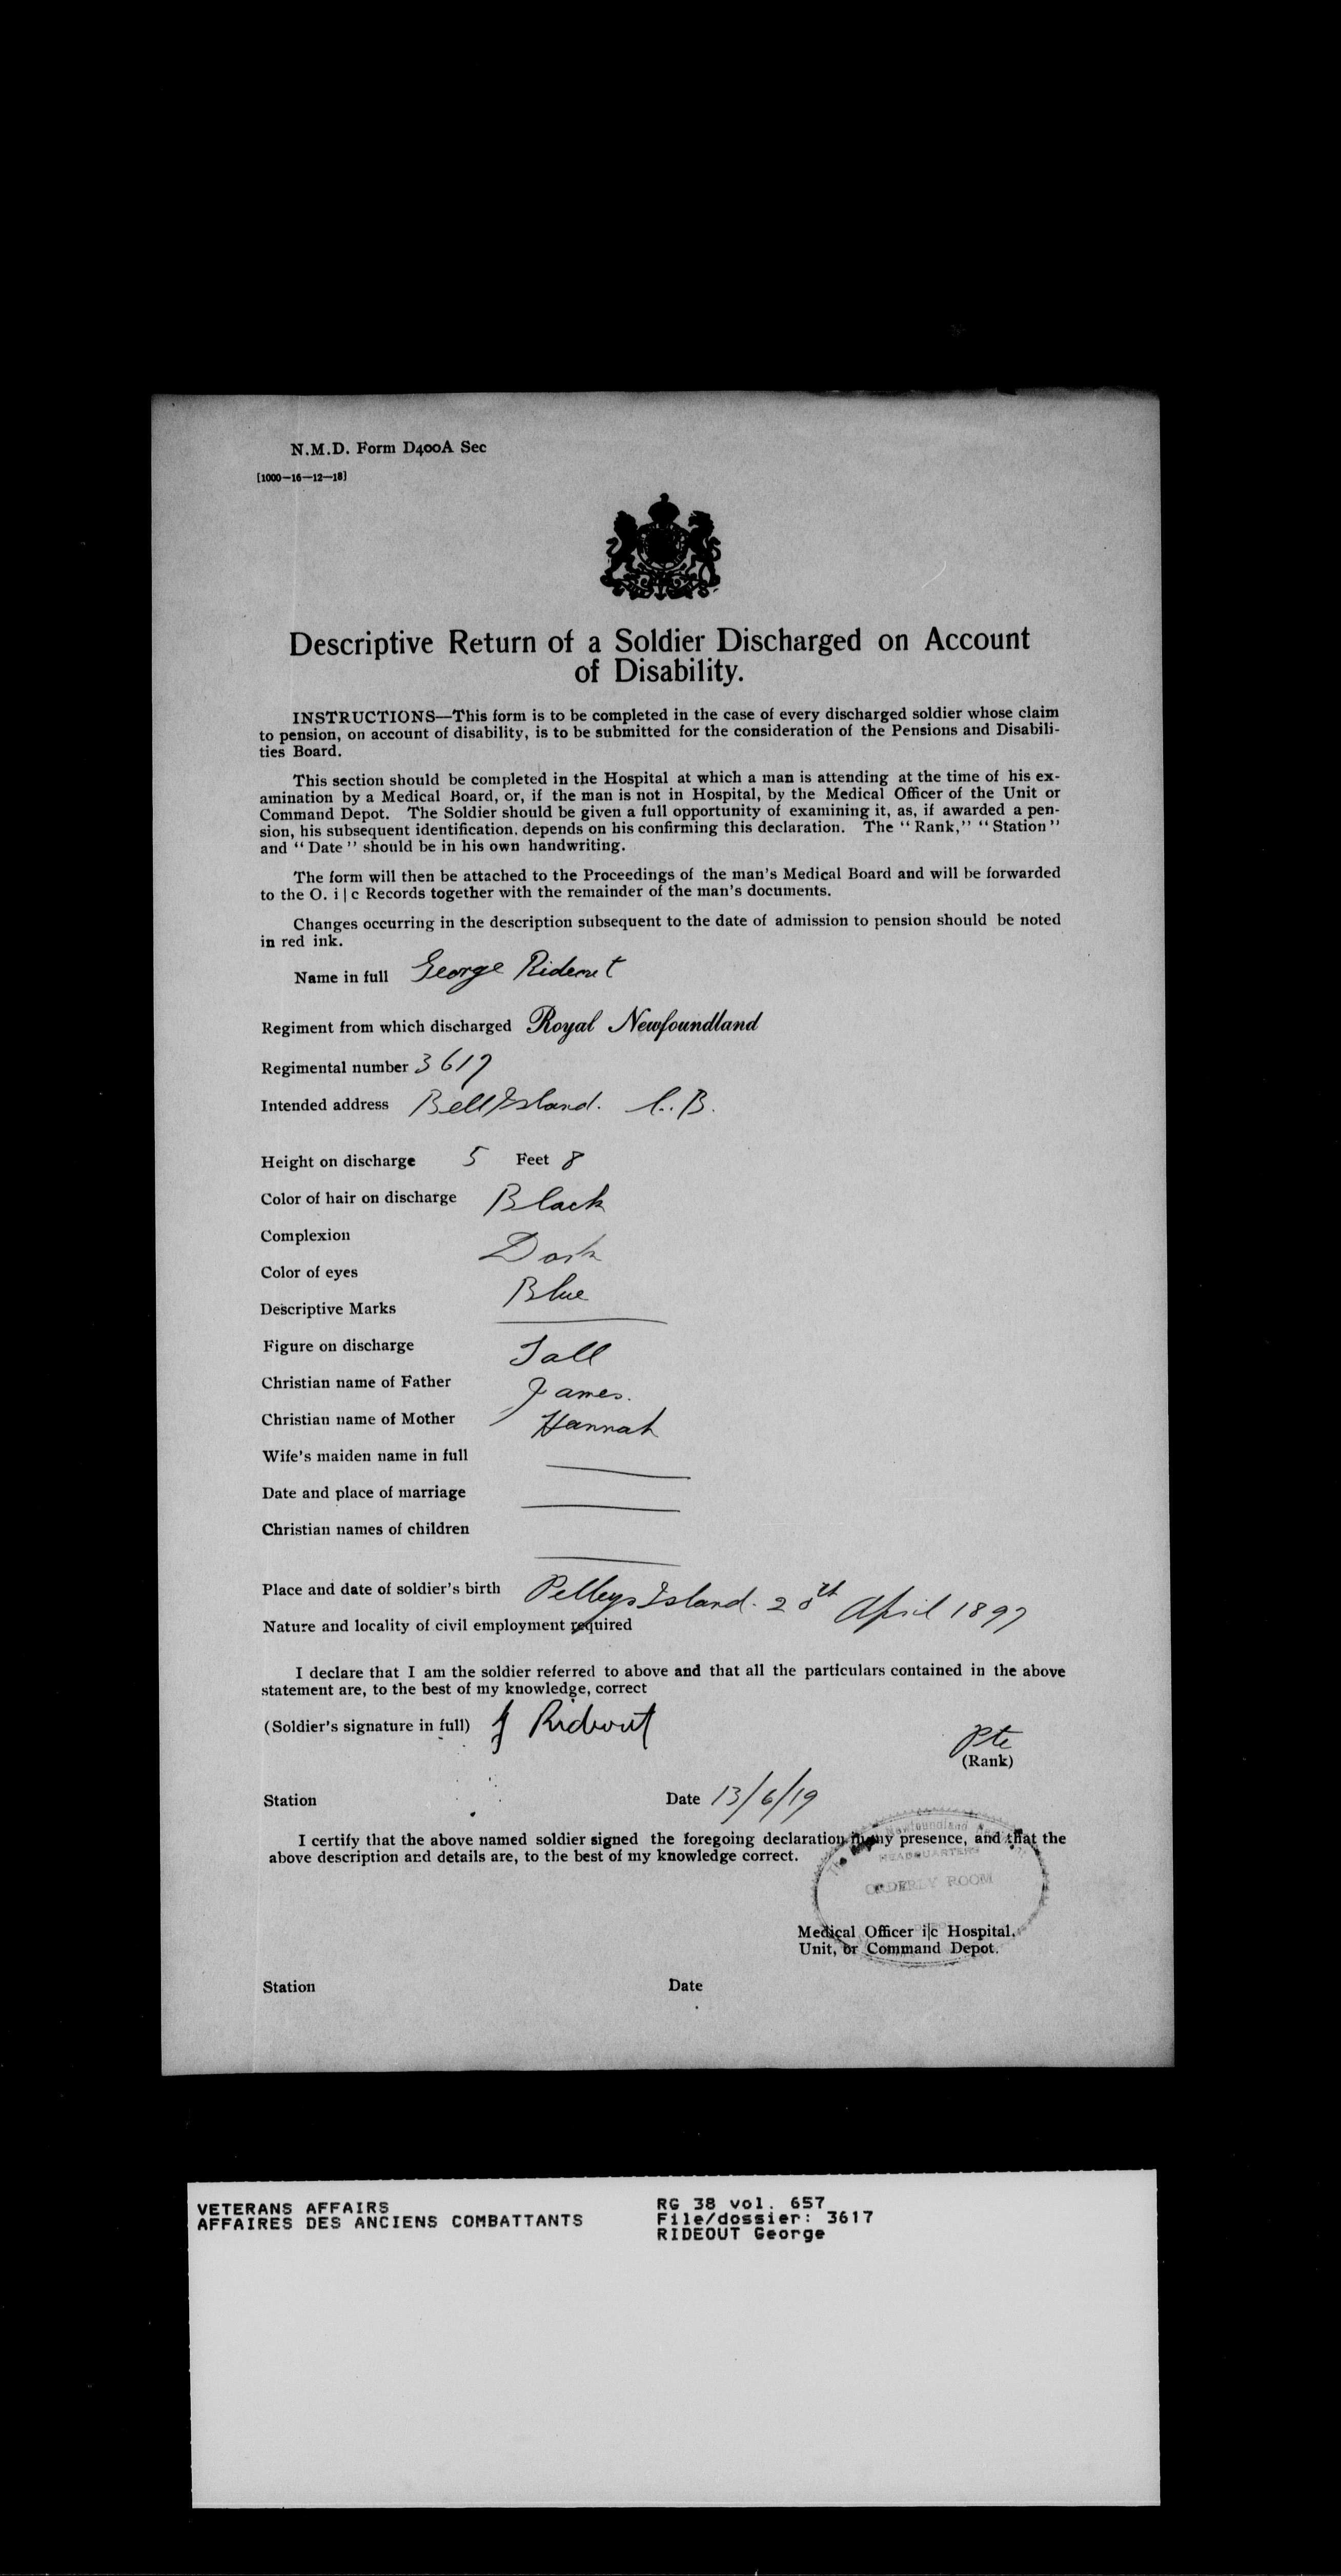 N.M.D. Form D400A Sec
[1000—16—12—18]
Descriptive Return of a Soldier Discharged on Account
of Disability.
INSTRUCTIONS—This form is to be completed in the case of every discharged soldier whose claim
to pension, on account of disability, is to be submitted for the consideration of the Pensions and Disabili-
ties Board.
This section should be completed in the Hospital at which a man is attending at the time of his ex-
amination by a Medical Board, or, if the man is not in Hospital, by the Medical Officer of the Unit or
Command Depot. The Soldier should be given a full opportunity of examining it, as, if awarded a pen-
sion, his subsequent identification, depends on his confirming this declaration. The "Rank," "Station"
and "Date" should be in his own handwriting.
The form will then be attached to the Proceedings of the man's Medical Board and will be forwarded
to the O. i|c Records together with the remainder of the man's documents.
Changes occurring in the description subsequent to the date of admission to pension should be noted
in red ink.
Name in full George Rideout
Regiment from which discharged Royal Newfoundland
Regimental number 3617
Intended address Bell Island. C.B.
Height on discharge 5 Feet 8
Color of hair on discharge Black
Complexion Dark
Color of eyes Blue
Descriptive Marks
Figure on discharge Tall
Christian name of Father James.
Christian name of Mother Hannah
Wife's maiden name in full
Date and place of marriage
Christian names of children
Place and date of soldier's birth Pelleys Island. 28th April 1897
Nature and locality of civil employment required
I declare that I am the soldier referred to above and that all the particulars contained in the above
statement are, to the best of my knowledge, correct
(Soldier's signature in full) G Rideout
Pte
(Rank)
Station Date 13/6/19
I certify that the above named soldier signed the foregoing declaration in my presence, and that the
above description and details are, to the best of my knowledge correct.
Newfoundland
HEADQUARTERS
ORDERLY ROOM
Medical Officer i|c Hospital,
Unit, or Command Depot.
Station Date
VETERANS AFFAIRS
AFFAIRES DES ANCIENS COMBATTANTS
RG 38 vol. 657
File/dossier: 3617
RIDEOUT George